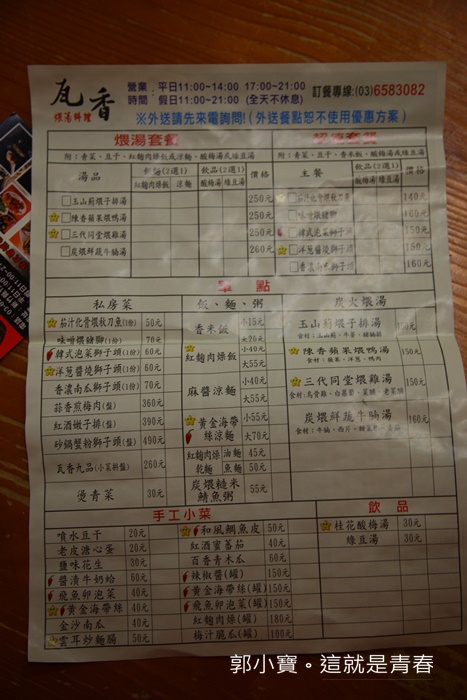 瓦香
煨湯料理
營業．平日11:00~14:00 17:00~21:00
時間 假日11:00~21:00 (全天不休息)
訂餐專線:(03)6583082
※外送請先來電詢問!(外送餐點恕不使用優惠方案)
煨湯套餐
附：青菜、豆干、紅麴肉燥飯或涼麵、酸梅湯或綠豆湯
湯品 飯麵(2選1) 飲品(2選1) 價格
紅麴肉燥飯 涼麵 酸梅湯 綠豆湯
玉山薊煨子排湯 250元
陳香蘋果煨鴨湯 250元
三代同堂煨雞湯 250元
炭煨鮮蔬牛腩湯 260元
附：青菜、豆干、香米飯、酸梅湯或綠豆湯
主餐 飲品(2選1) 價格
酸梅湯 綠豆湯
茄汁化骨煨秋刀魚 140元
味噌煨豬腳 160元
韓式泡菜獅子頭 150元
洋蔥醬燒獅子頭 150元
香濃南瓜獅子頭 160元
單點
私房菜
茄汁化骨煨秋刀魚(1份) 50元
味噌煨豬腳(1份) 70元
韓式泡菜獅子頭(1份) 60元
洋蔥醬燒獅子頭(1份) 60元
香濃南瓜獅子頭(1份) 70元
蒜香煎梅肉(盤) 360元
紅酒嫩子排(盤) 390元
砂鍋蟹粉獅子頭(盤) 490元
瓦香九品(小菜拼盤) 260元
燙青菜 30元
飯、麵、粥
香米飯 小15元
大20元
紅麴肉燥飯 小40元
麻醬涼麵 小40元
大55元
黃金海帶絲涼麵 小55元
大70元
紅麴肉燥乾麵 油麵 45元
魚麵 50元
炭煨糙米鯖魚粥 55元
炭火煨湯
玉山薊煨子排湯
陳香蘋果煨鴨湯 150元
食材：蘋果、洋蔥、鴨肉
三代同堂煨雞湯 150元
炭煨鮮蔬牛腩湯 160元
手工小菜
噴水豆干 20元
老皮溏心蛋 20元
鹽味花生 30元
醬漬牛奶蛤 60元
飛魚卵泡菜 40元
黃金海帶絲 40元
金沙南瓜 40元
雲耳炒麵腸 50元
和風鯛魚皮 50元
紅酒蜜蕃茄 40元
百香青木瓜 60元
辣椒醬(罐) 150元
黃金海帶絲(罐) 150元
飛魚卵泡菜(罐) 150元
紅麴肉燥(罐) 180元
梅汁脆瓜(罐) 100元
飲品
桂花酸梅湯 30元
綠豆湯 30元
郭小寶。這就是青春